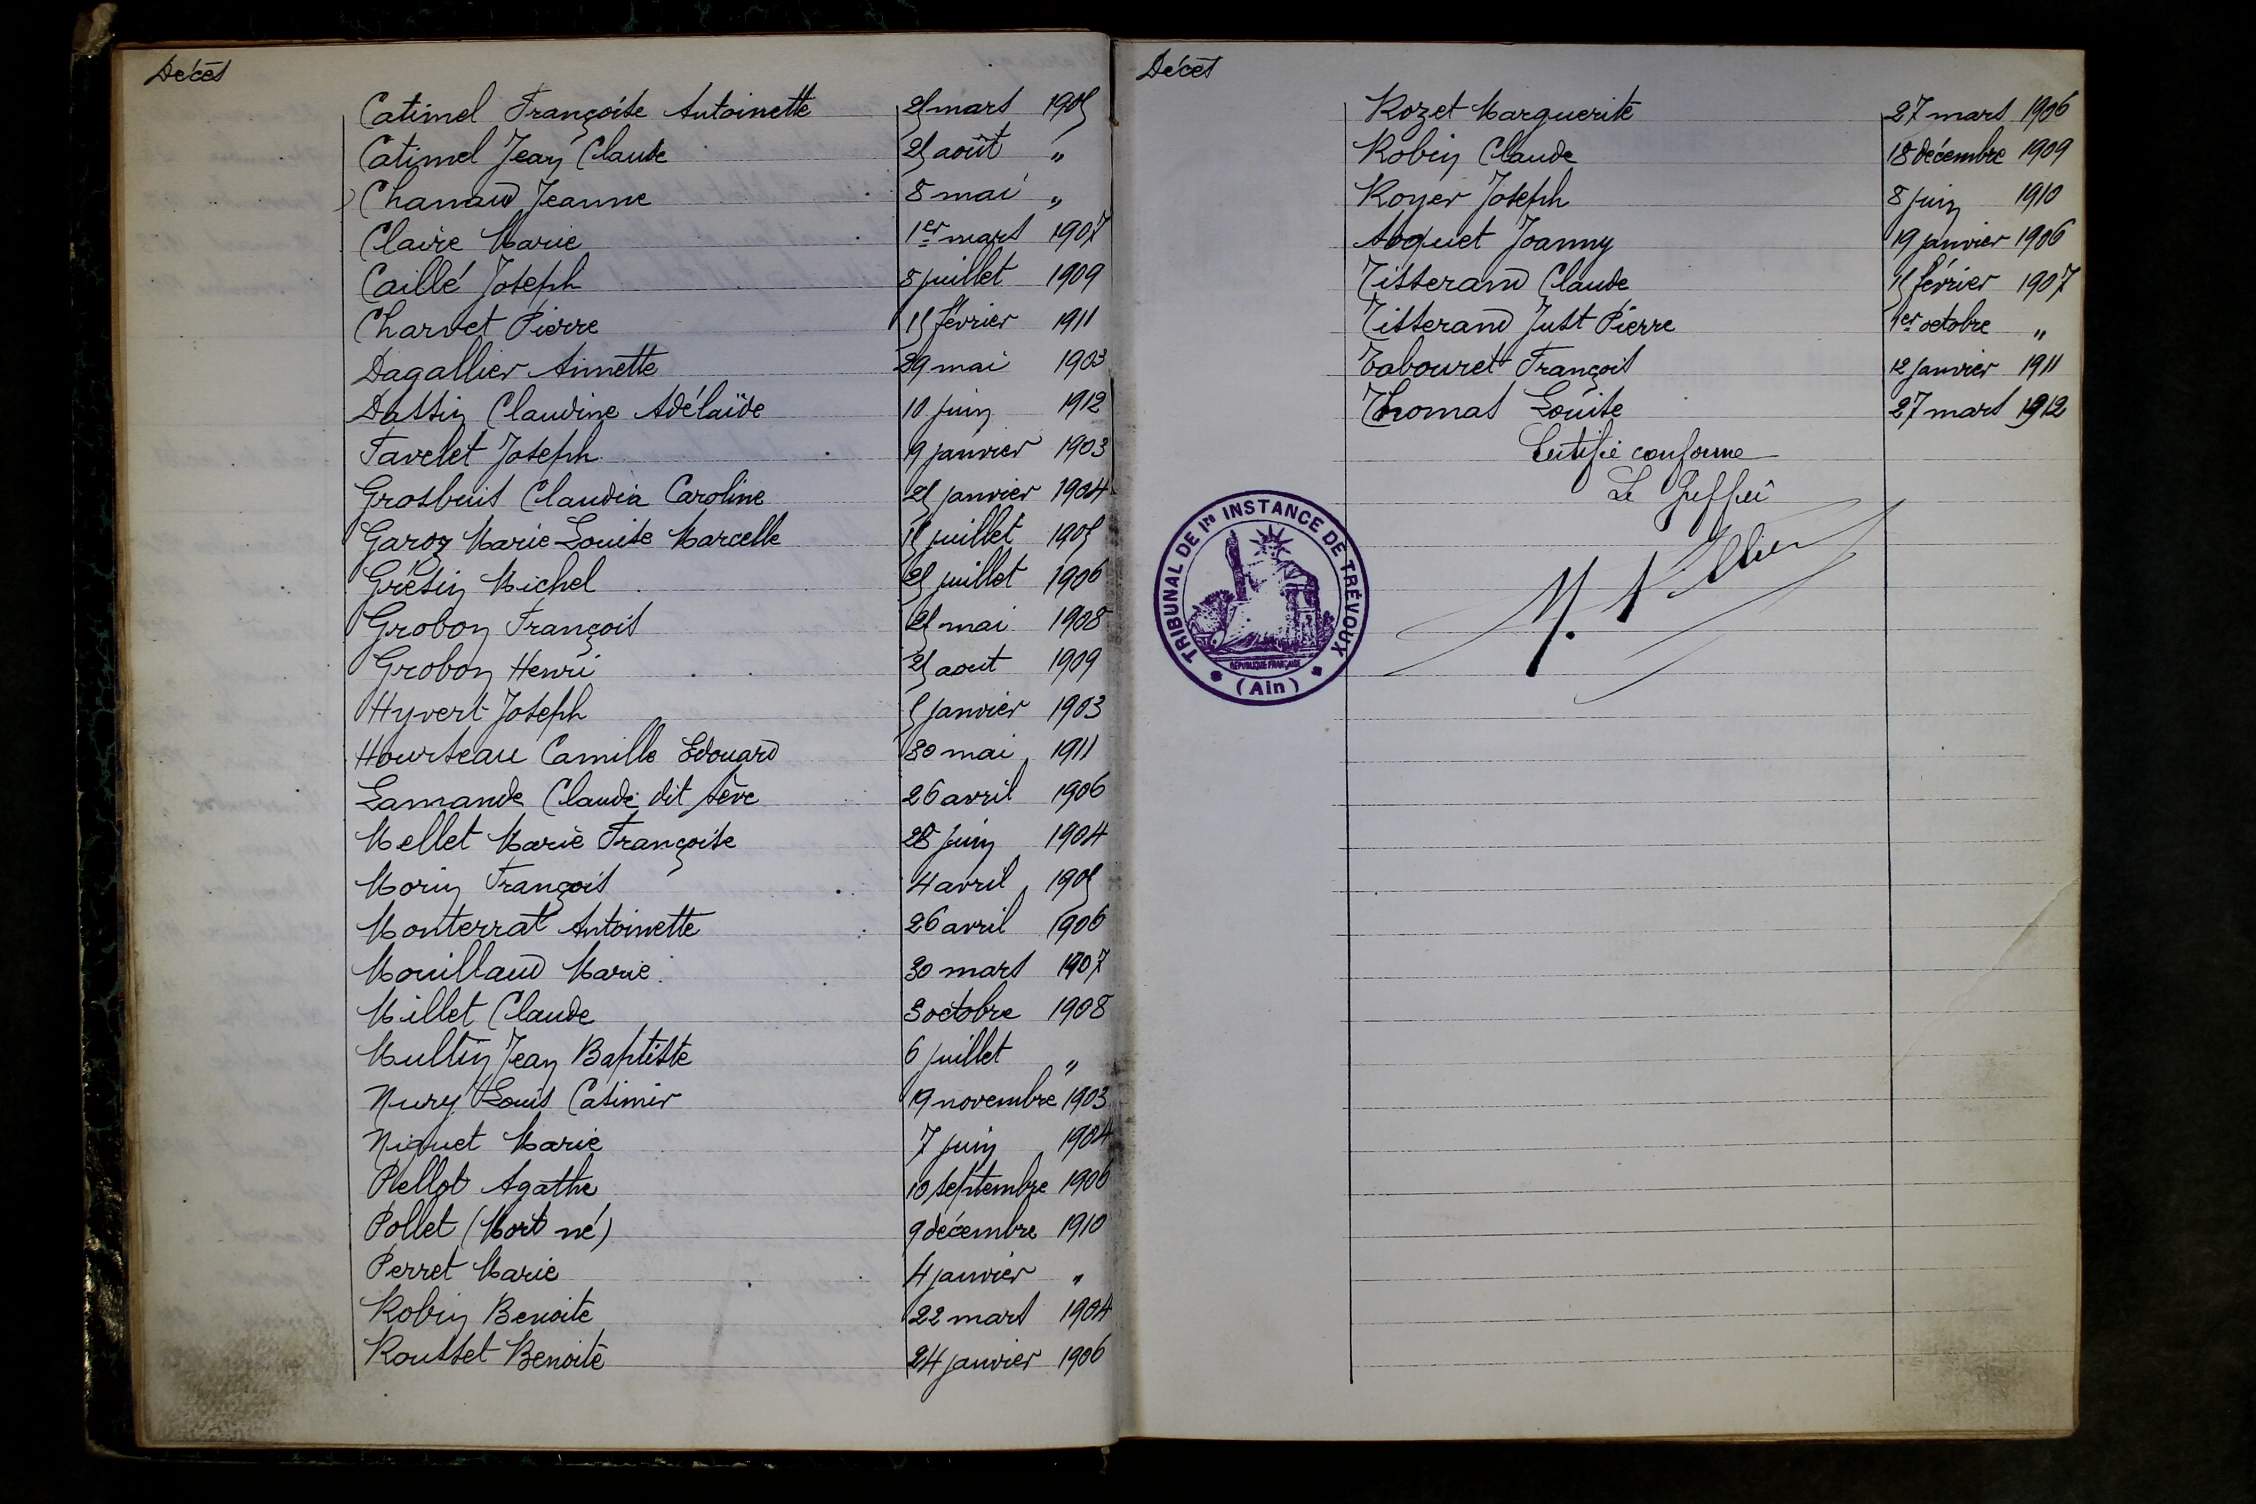 Décès
Catimel Françoise Antoinette 25 mars 1905
Catimel Jean Claude 25 août "
Chanaud Jeanne 8 mai "
Claire Marie 1er mars 1907
Caillé Joseph 8 juillet 1909
Charvet Pierre 15 février 1911
Dagallier Annette 29 mai 1903
Dassin Claudine Adélaïde 10 juin 1912
Favelet Joseph 9 janvier 1903
Grosbuis Claudia Caroline 25 janvier 1904
Garoz Marie Louise Marcelle 15 juillet 1905
Grésin Michel 25 juillet 1906
Grobon François 25 mai 1908
Grobon Henri 25 aout 1909
Hyvert Joseph 5 janvier 1903
Hourseau Camille Edouard 30 mai 1911
Lamande Claude dit Sève 26 avril 1906
Mellet Marie Françoise 28 juin 1904
Morin François 4 avril 1905
Monterrat Antoinette 26 avril 1906
Mouillaud Marie 30 mars 1907
Millet Claude 3 octobre 1908
Multin Jean Baptiste 6 juillet "
Nury Louis Casimir 19 novembre 1903
Niquet Marie 7 juin 1904
Pellot Agathe 10 septembre 1906
Pollet (Mort né) 9 décembre 1910
Perret Marie 4 janvier "
Robin Benoite 22 mars 1904
Rousset Benoite 24 janvier 1906
Décès
Rozet Marguerite 27 mars 1906
Robin Claude 18 décembre 1909
Royer Joseph 8 juin 1910
Soquet Joanny 19 janvier 1906
Tisserand Claude 15 février 1907
Tisserand Just Pierre 1er octobre "
Tabouret François 12 janvier 1911
Thomas Louise 27 mars 1912
Certifié conforme
Le Greffier
TRIBUNAL DE 1re INSTANCE DE TRÉVOUX
RÉPUBLIQUE FRANÇAISE
(Ain)